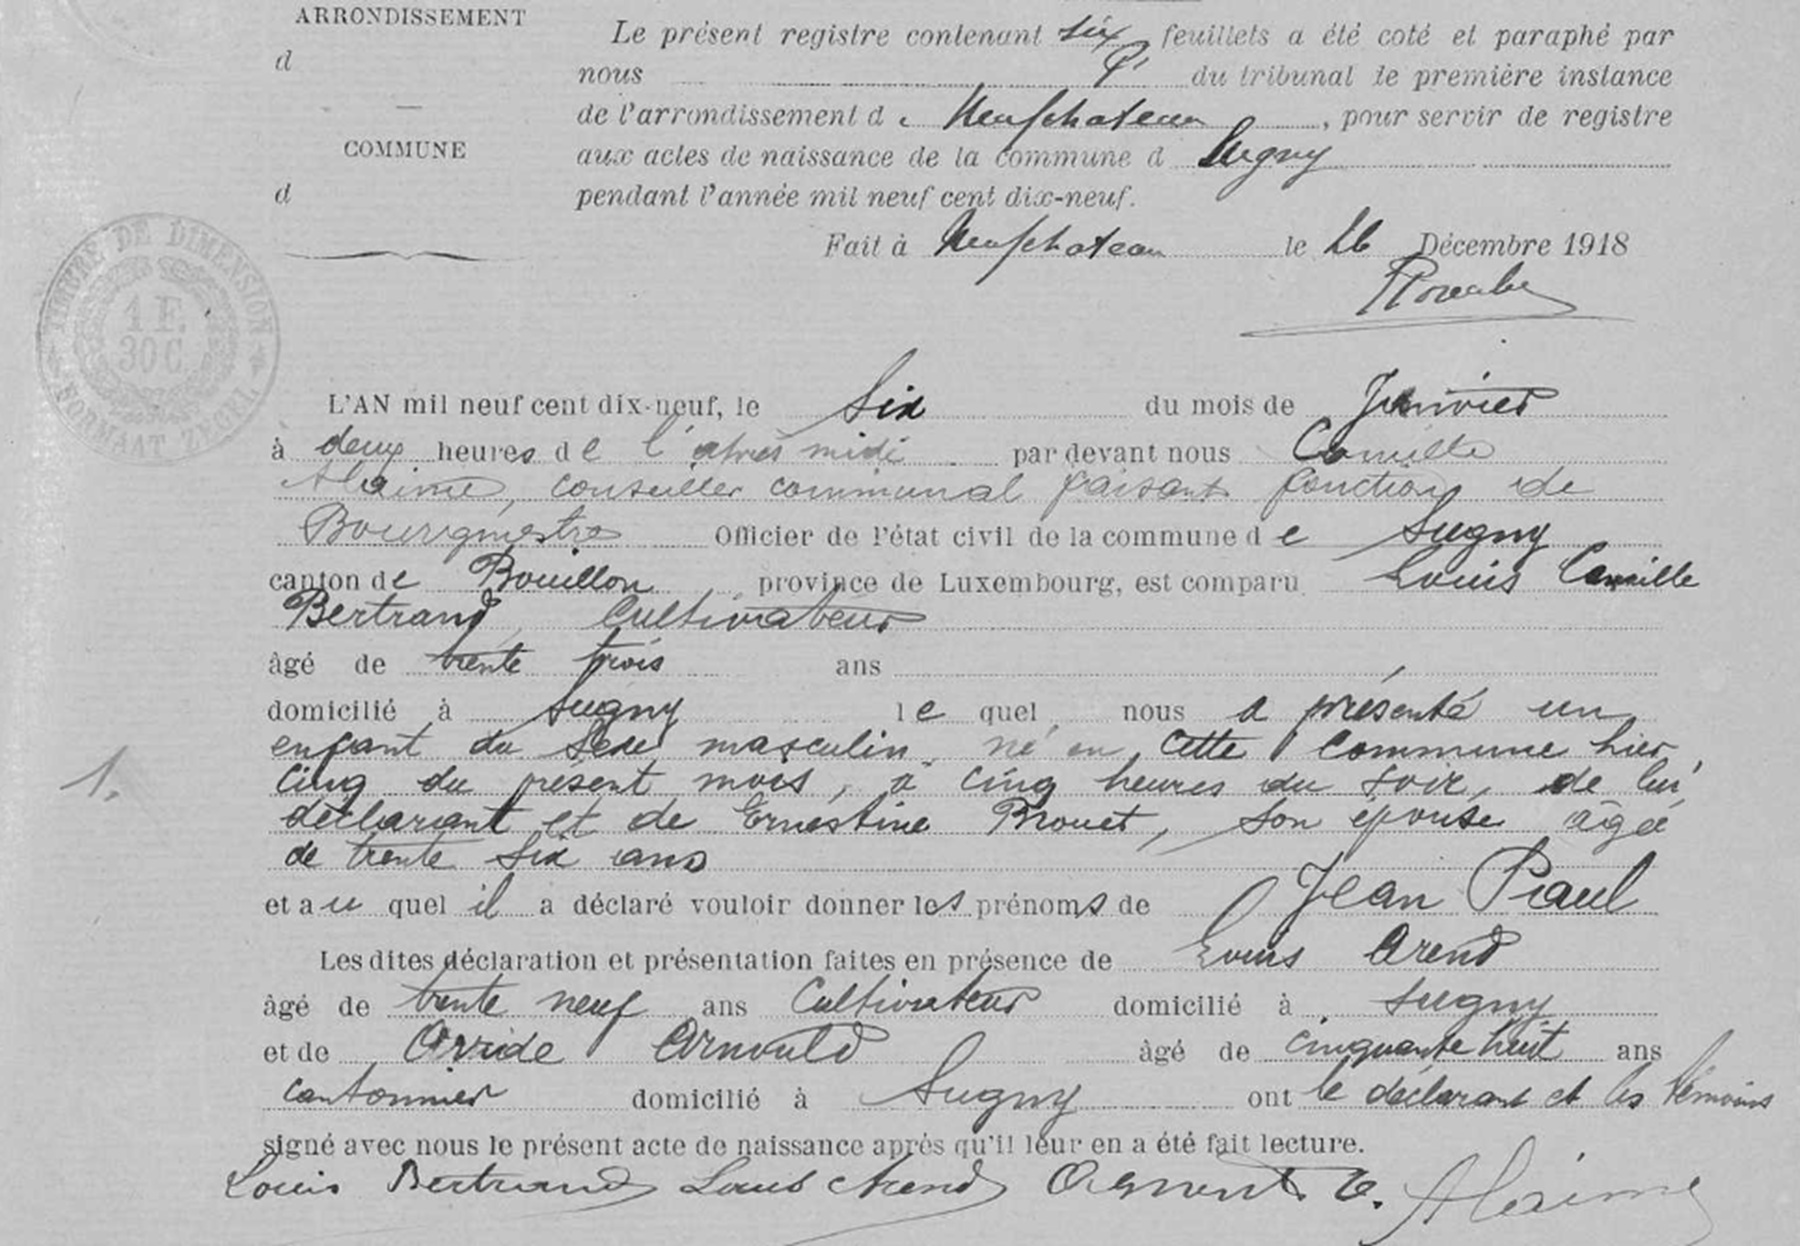 ARRONDISSEMENT
d
COMMUNE
d
Le présent registre contenant six feuillets a été coté et paraphé par
nous du tribunal de première instance
de l'arrondissement de Neufchateau, pour servir de registre
aux actes de naissance de la commune d Sugny
pendant l'année mil neuf cent dix-neuf.
Fait à Neufchateau le 26 Décembre 1918
TIMBRE DE DIMENSION
1 F.
30 C.
FORMAAT ZEGEL
L'AN mil neuf cent dix-neuf, le Six du mois de Janvier
à deux heures de l'après midi par devant nous Camille
Alaime, conseiller communal faisant fonction de
Bourgmestre Officier de l'état civil de la commune de Sugny
canton de Bouillon province de Luxembourg, est comparu Louis Camille
Bertrand, Cultivateur
âgé de trente trois ans
domicilié à Sugny lequel nous a présenté un
enfant du sexe masculin né en cette commune hier
cinq du présent mois, à cinq heures du soir, de lui
déclarant et de Ernestine Brouet, son épouse âgée
de trente six ans
1.
et auquel il a déclaré vouloir donner les prénoms de Jean Paul
Les dites déclaration et présentation faites en présence de Louis Arend
âgé de trente neuf ans Cultivateur domicilié à Sugny
et de Arnould âgé de cinquante huit ans
cantonnier domicilié à Sugny ont le déclarant et les témoins
signé avec nous le présent acte de naissance après qu'il leur en a été fait lecture.
Louis Bertrand Louis Arend Alaime